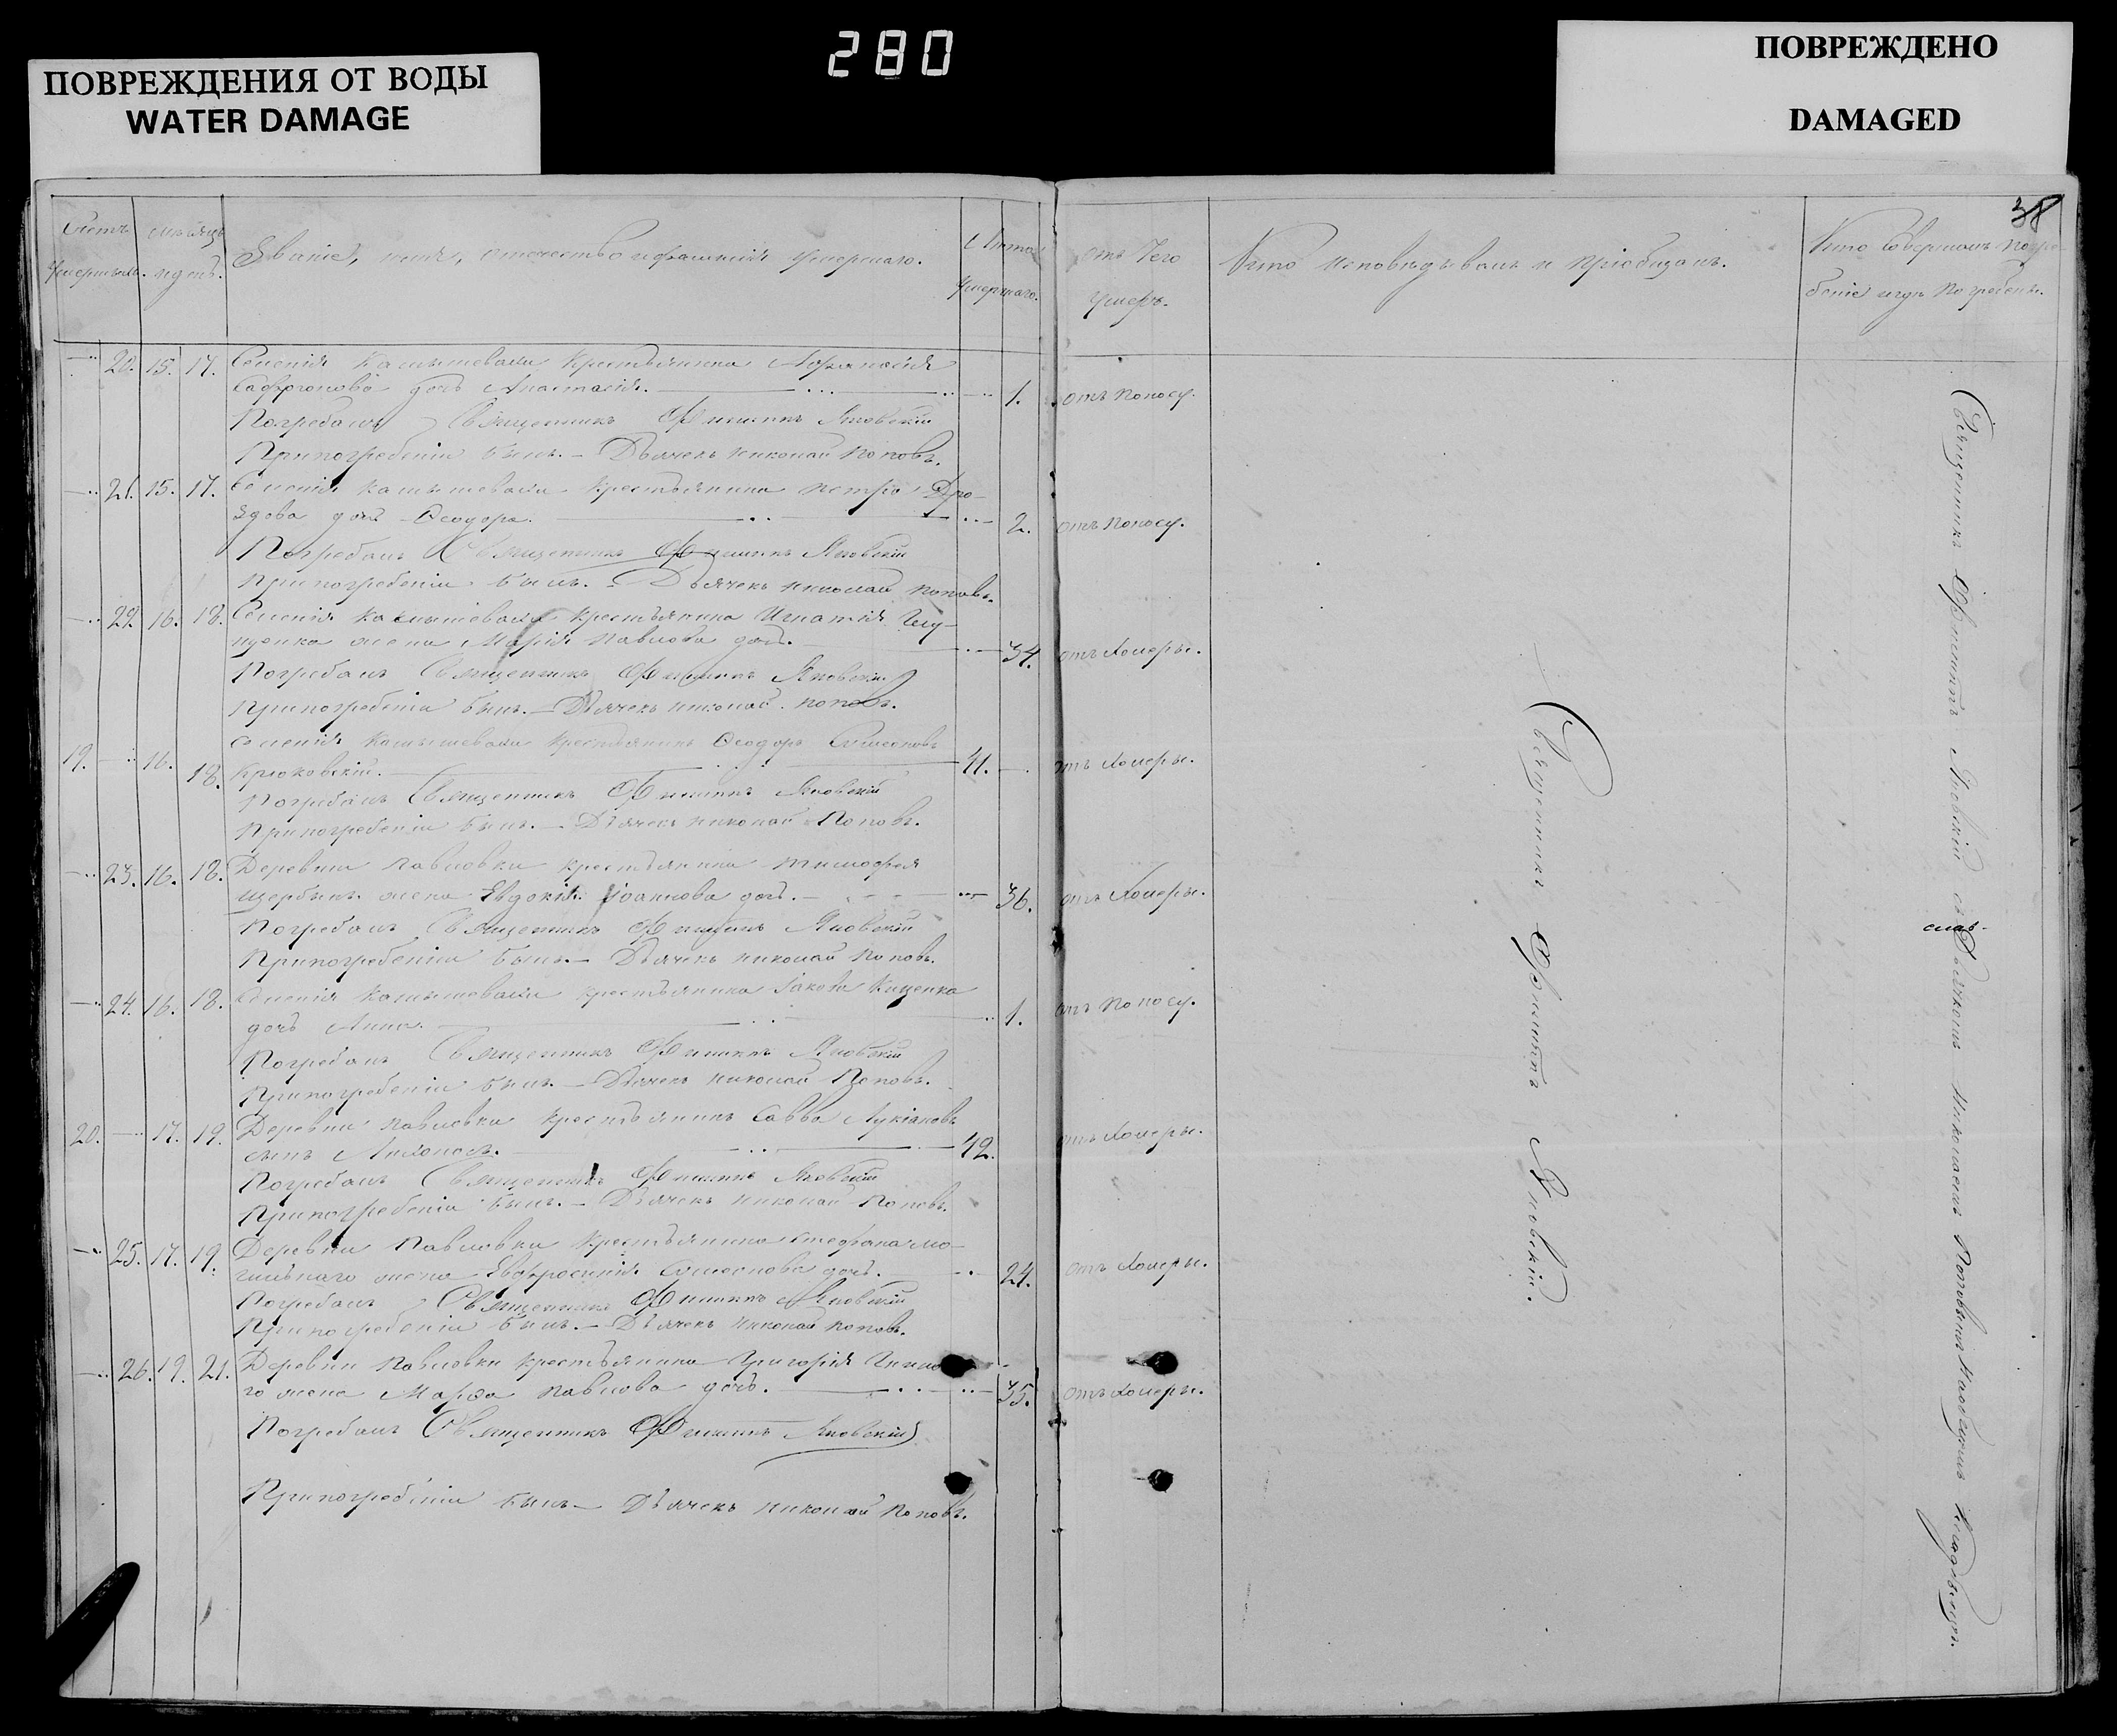 280
ПОВРЕЖДЕНИЯ ОТ ВОДЫ
WATER DAMAGE
ПОВРЕЖДЕНО
DAMAGED
38
Счетъ умершихъ.
мѣсяцъ и день.
Званіе, имя, отечество и фамилія умершаго.
Лета умершаго.
отъ Чего умеръ.
Кто исповѣдывалъ и пріобщалъ.
Кто совершалъ погребеніе и гдѣ погребенъ.
20. 15. 17. Селенія Камышевахи Крестьянина Афанасія
Сафронова дочь Анастасія. 1. отъ поносу.
Погребалъ Священникъ Филиппъ Яновскій
При погребеніи былъ. Дьячекъ Николай Поповъ.
21. 15. 17. Селенія Камышевахи Крестьянина Петра Дро-
здова дочь Ѳеодора. 2. отъ поносу.
Погребалъ Священникъ Филиппъ Яновскій
При погребеніи былъ. Дьячекъ Николай Поповъ.
22. 16. 18. Селенія Камышевахи Крестьянина Игнатія
жена Марія Павлова дочь. 34. отъ холеры.
Погребалъ Священникъ Филиппъ Яновскій
При погребеніи былъ. Дьячекъ Николай Поповъ.
Селенія Камышевахи Крестьянинъ Ѳеодоръ Симеоновъ
19. 16. 18. Крюковскій. 41. отъ холеры.
Погребалъ Священникъ Филиппъ Яновскій
При погребеніи былъ. Дьячекъ Николай Поповъ.
23. 16. 18. Деревни Павловки крестьянина Тимофея
Щербины жена Евдокія Іоаннова дочь. 36. отъ холеры.
Погребалъ Священникъ Филиппъ Яновскій
При погребеніи былъ. Дьячекъ Николай Поповъ.
24. 16. 18. Селенія Камышевахи крестьянина Іакова Каценка
дочь Анна. 1. отъ поносу.
Погребалъ Священникъ Филиппъ Яновскій
При погребеніи былъ. Дьячекъ Николай Поповъ.
20. 17. 19. Деревни Павловки крестьянинъ Савва Лукіановъ
сынъ 42. отъ холеры.
Погребалъ Священникъ Филиппъ Яновскій
При погребеніи былъ. Дьячекъ Николай Поповъ.
25. 17. 19. Деревни Павловки крестьянина Стефана Мо-
гильнаго жена Евфросинія Симеонова дочь. 24. отъ холеры.
Погребалъ Священникъ Филиппъ Яновскій
При погребеніи былъ. Дьячекъ Николай Поповъ.
26. 19. 21. Деревни Павловки крестьянина Григорія
го жена Марфа Павлова дочь. 35. отъ холеры.
Погребалъ Священникъ Филиппъ Яновскій
При погребеніи былъ Дьячекъ Николай Поповъ.
Священникъ Филиппъ Яновскій.
Священникъ Филиппъ Яновскій съ Дьячкомъ Николаемъ Поповымъ на общемъ кладбищѣ.